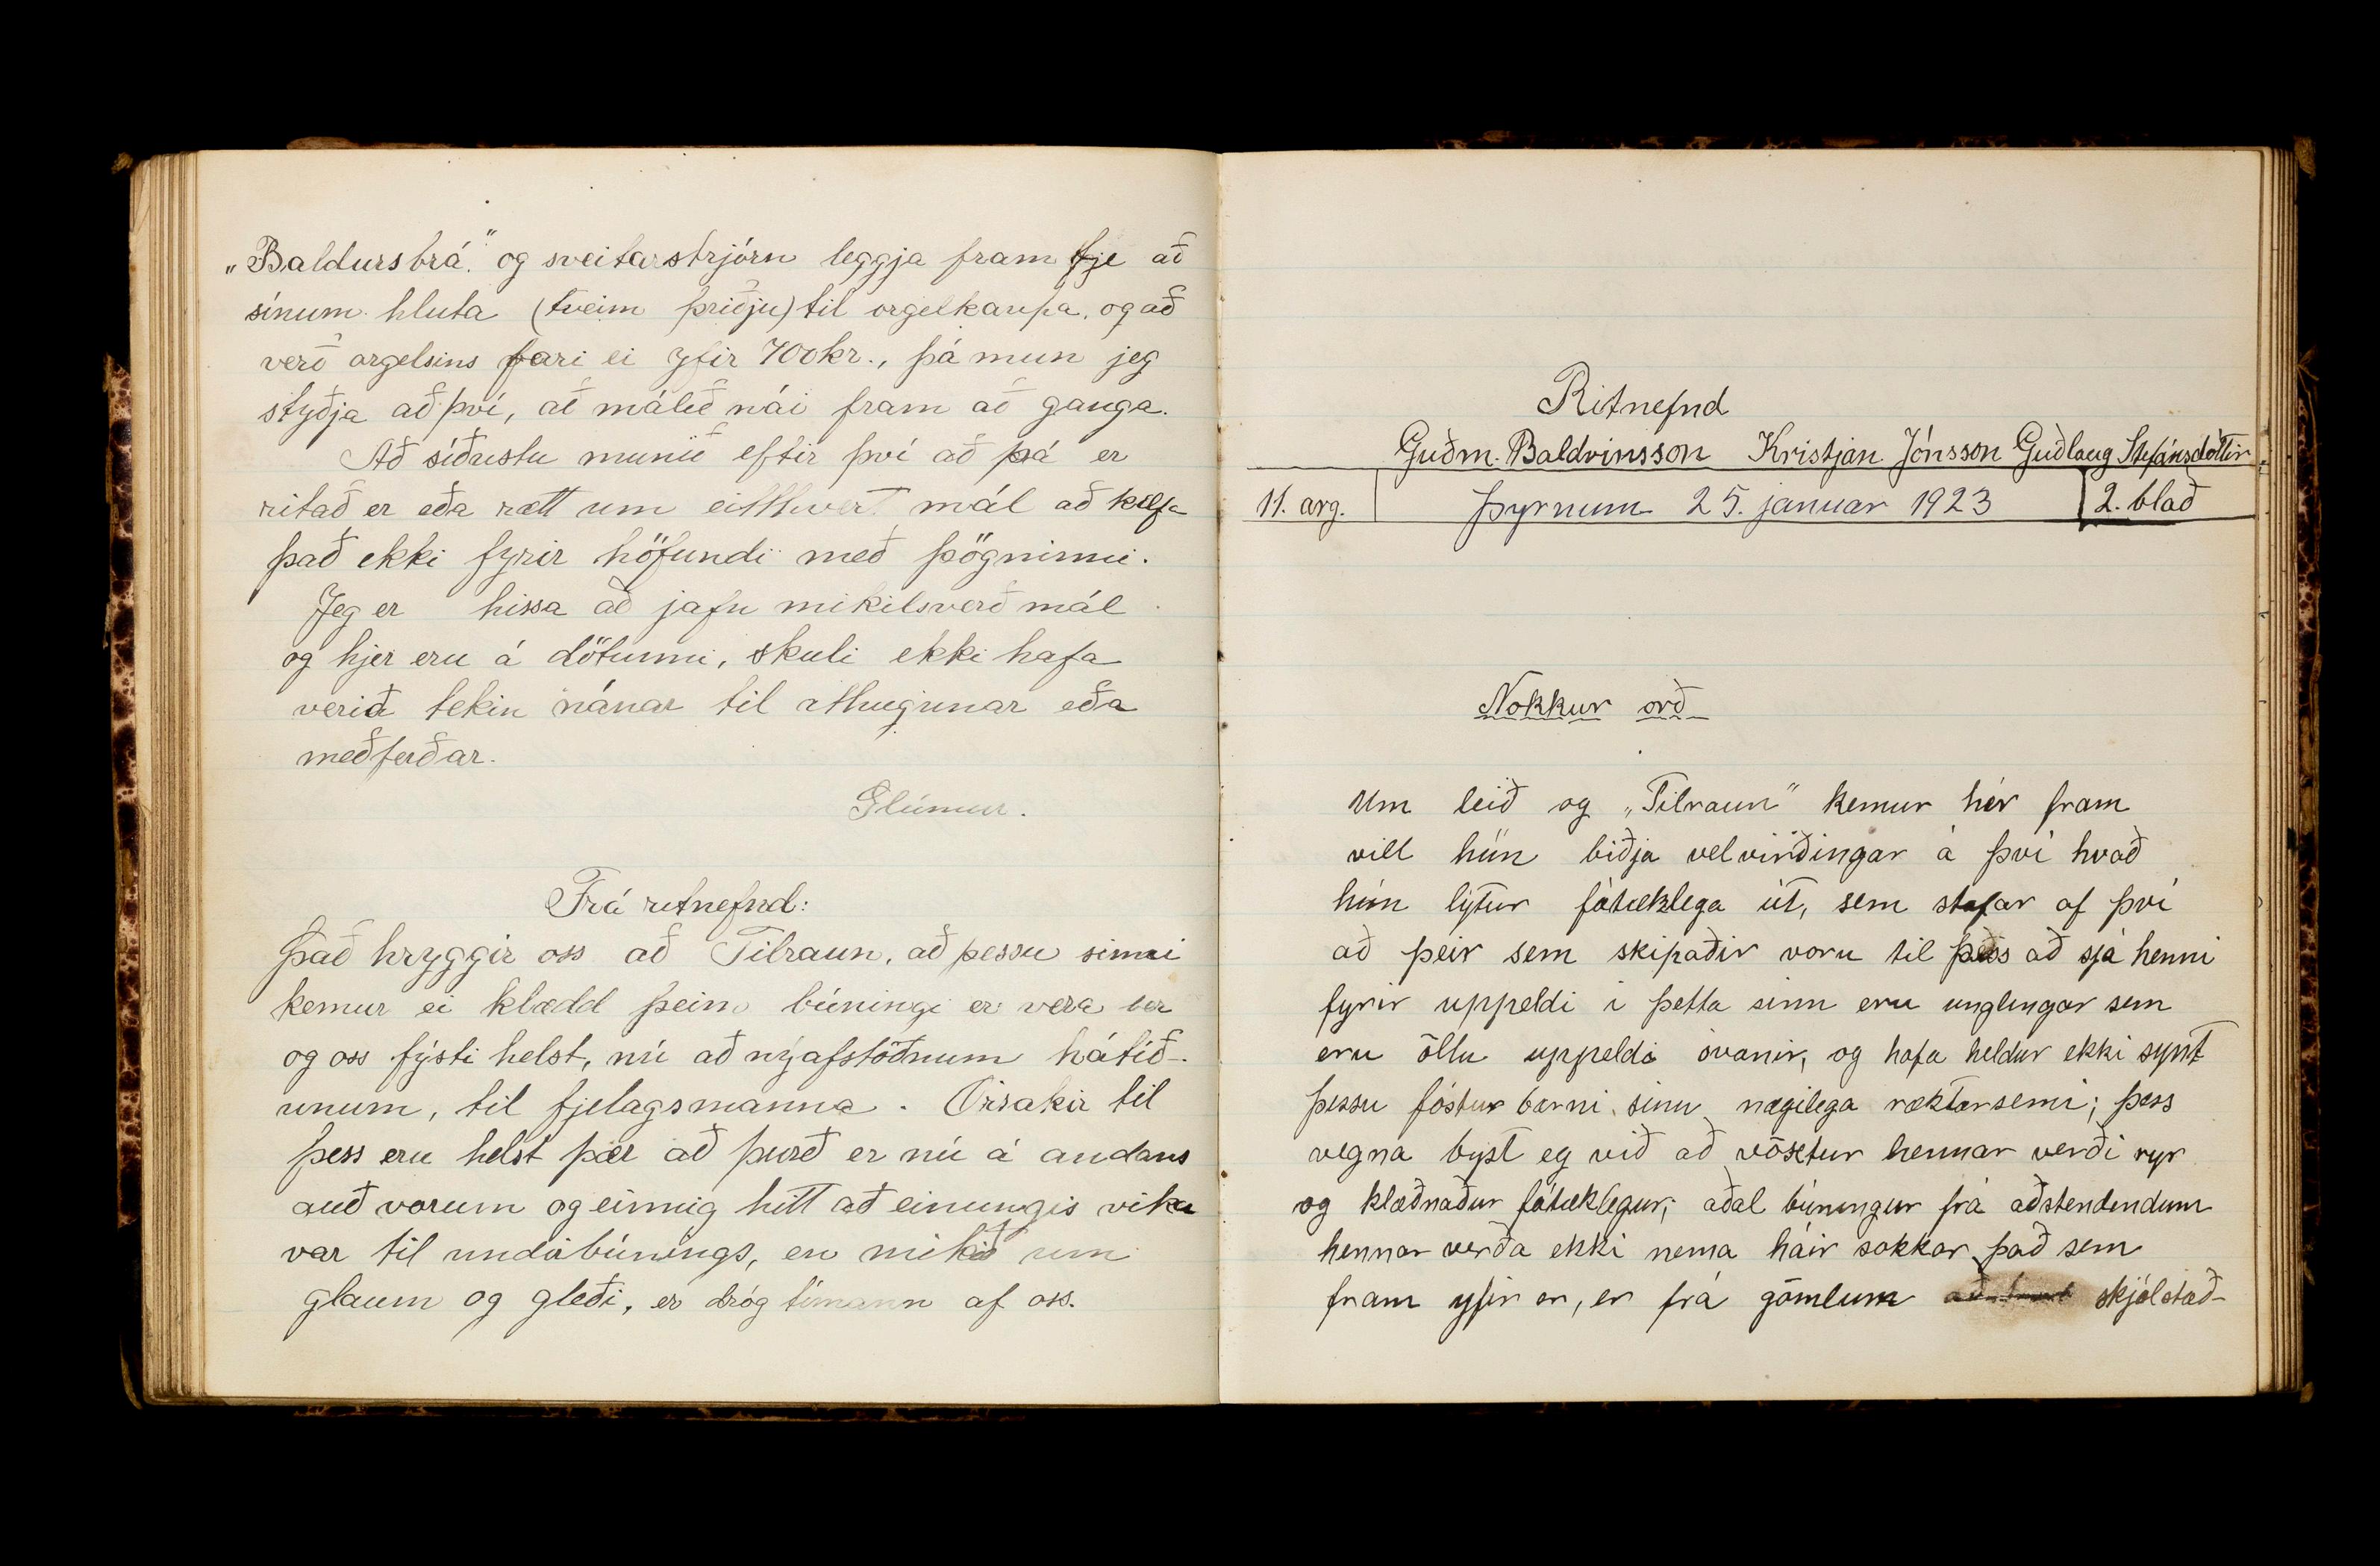 „Baldursbrá." og sveitarstrjórn leggja fram fje að
sínum hluta (tveim þriðju) til orgelkaupa, og að
verð orgelsins fari ei yfir 700kr., þá mun jeg
styðja að því, að málið nái fram að ganga.
Að síðustu munið eftir því að þá er
ritað er eða rætt um eitthvert mál að kæfa
það ekki fyrir höfundi með þögninni.
Jeg er hissa að jafn mikilsverð mál
og hjer eru á döfunni, skuli ekki hafa
verið tekin nánar til athugunar eða
meðferðar.
Glúmur.
Frá ritnefnd:
Það hryggir oss að Tilraun, að þessu sinni
kemur ei klædd þeim búningi er vera ber
og oss fýsti helst, nú að nýafstöðnum hátíð-
unum, til fjelagsmanna. Orsakir til
þess eru helst þær að þurð er nú á andans
auð vorum og einnig hitt að einungis vika
var til undirbúnings, en mikið um
glaum og gleði, er dróg tímann af oss.
Ritnefnd
Guðm. Baldvinsson Kristján Jónsson Guðlaug Stefánsdóttir
11. arg. Þyrnum 25. januar 1923 2. blað
Nokkur orð
Um leið og „Tilraun" kemur hér fram
vill hún biðja velvirðingar á því hvað
hún lýtur fátæklega út, sem stafar af því
að þeir sem skipaðir voru til þess að sjá henni
fyrir uppeldi í þetta sinn eru unglingar sem
eru öllu uppeldi óvanir, og hafa heldur ekki synt
þessu fóstur barni sinu nægilega ræktarsemi; þess
vegna byst eg við að vöxtur hennar verði ryr
og klæðnaður fátæklegur; aðal búningur frá aðstendendum
hennar verða ekki nema háir sokkar það sem
fram yfir er, er frá gömlum skjólstæð-